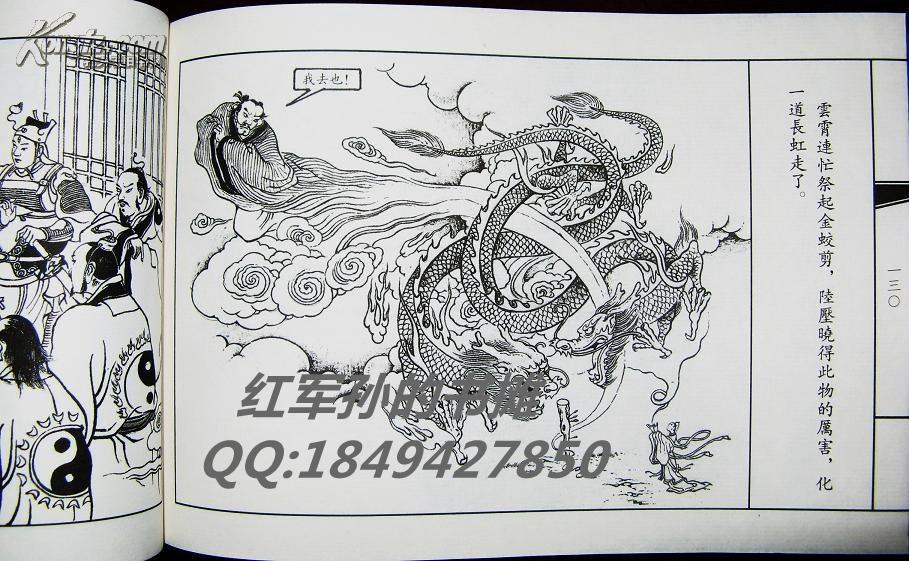 我去也!
雲霄連忙祭起金蛟剪，陸壓曉得此物的厲害，化
一道長虹走了。
一三〇
红军孙的书雕
QQ:1849427850